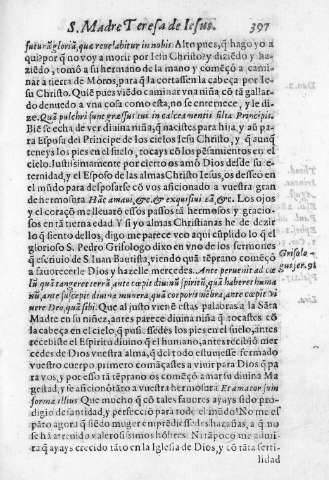 S. Madre Teresa de Iesus. 397
futurũ gloriã, quæ reuelabitur in nobis. Alto pues, q̃ hago yo a
qui? por q̃ no voy a morir por Iesu Christo? y diziẽdo, y ha-
ziẽdo, tomò a su hermano de la mano y començò a cami-
nar a tierra de Moros, para q̃ la cortassen la cabeça por Ie-
su Christo. Quiẽ pues viẽdo caminar vna niña cõ tã gallar-
do denuedo a vna cosa como esta, no se enternece, y le di-
ze. Quã pulchri sunt gressus tui in calceamentis filia Principis.
Biẽ se echa de ver diuina niña, q̃ nacistes para hija, y aũ pa-
ra Esposa del Principe de los cielos Iesu Christo, y q̃ aunq̃
teneys los pies en el suelo, tocays cõ los pẽsamientos en el
cielo. Iustissimamente por cierto os amò Dios desde su e-
ternidad, y el Esposo de las almas Christo Iesus, os desseò en
el mũdo para desposarse cõ vos aficionado a vuestra gran
de hermosura Hãc amaui, &c. & exquisiui eã, &c. Los ojos
y el coraçõ me lleuarõ essos passos tã hermosos y gracio-
sos en tã tierna edad Y si yo almas Christianas he de dezir
lo q̃ siento dellos, digo me parece ver aqui cũplido lo q̃ el
glorioso S. Pedro Grisologo dixo en vno de los sermones
q̃ escriuio de S. Iuan Bautista, viendo quã tẽprano començò
a fauorecerle Dios y hazelle mercedes. Ante peruenit ad cœ
lũ quã tangeret terrã, ante cœpit diuinũ spiritũ, quã haberet huma
nũ, ante suscepit diuina munera, quã corporis mẽbra, ante cœpit vi
uere Deo, quã sibi. Que al justo vienẽ estas palabras a la Sãta
Madre en su niñez, antes parece diuina niña q̃ tocastes cõ
la cabeça en el cielo, q̃ pusiessedes los pies en el suelo, antes
recebiste el Espiritu diuino q̃ el humano, antes recibiò mer
cedes de Dios vuestra alma, q̃ del todo estuuiesse formado
vuestro cuerpo primero comẽçastes a viuir para Dios q̃ pa
ra vos, y por esso tã tẽprano os començò amar su diuina Ma
gestad, y se aficionò tãto a vuestra hermosura Et amator sum
formæ illius Que mucho q̃ cõ tales fauores ayays sido pro-
digio de santidad, y perfecciõ para todo el mũdo? No me es
pãto agora q̃ siẽdo muger emprẽdiessedes hazañas, a q̃ no
se hã atreuido valerosissimos hõbres. Ni tãpoco me admi-
ra q̃ ayays crecido tãto en la Iglesia de Dios, y cõ tãta ferti-
lidad
Grisolo-
gus ser. 91